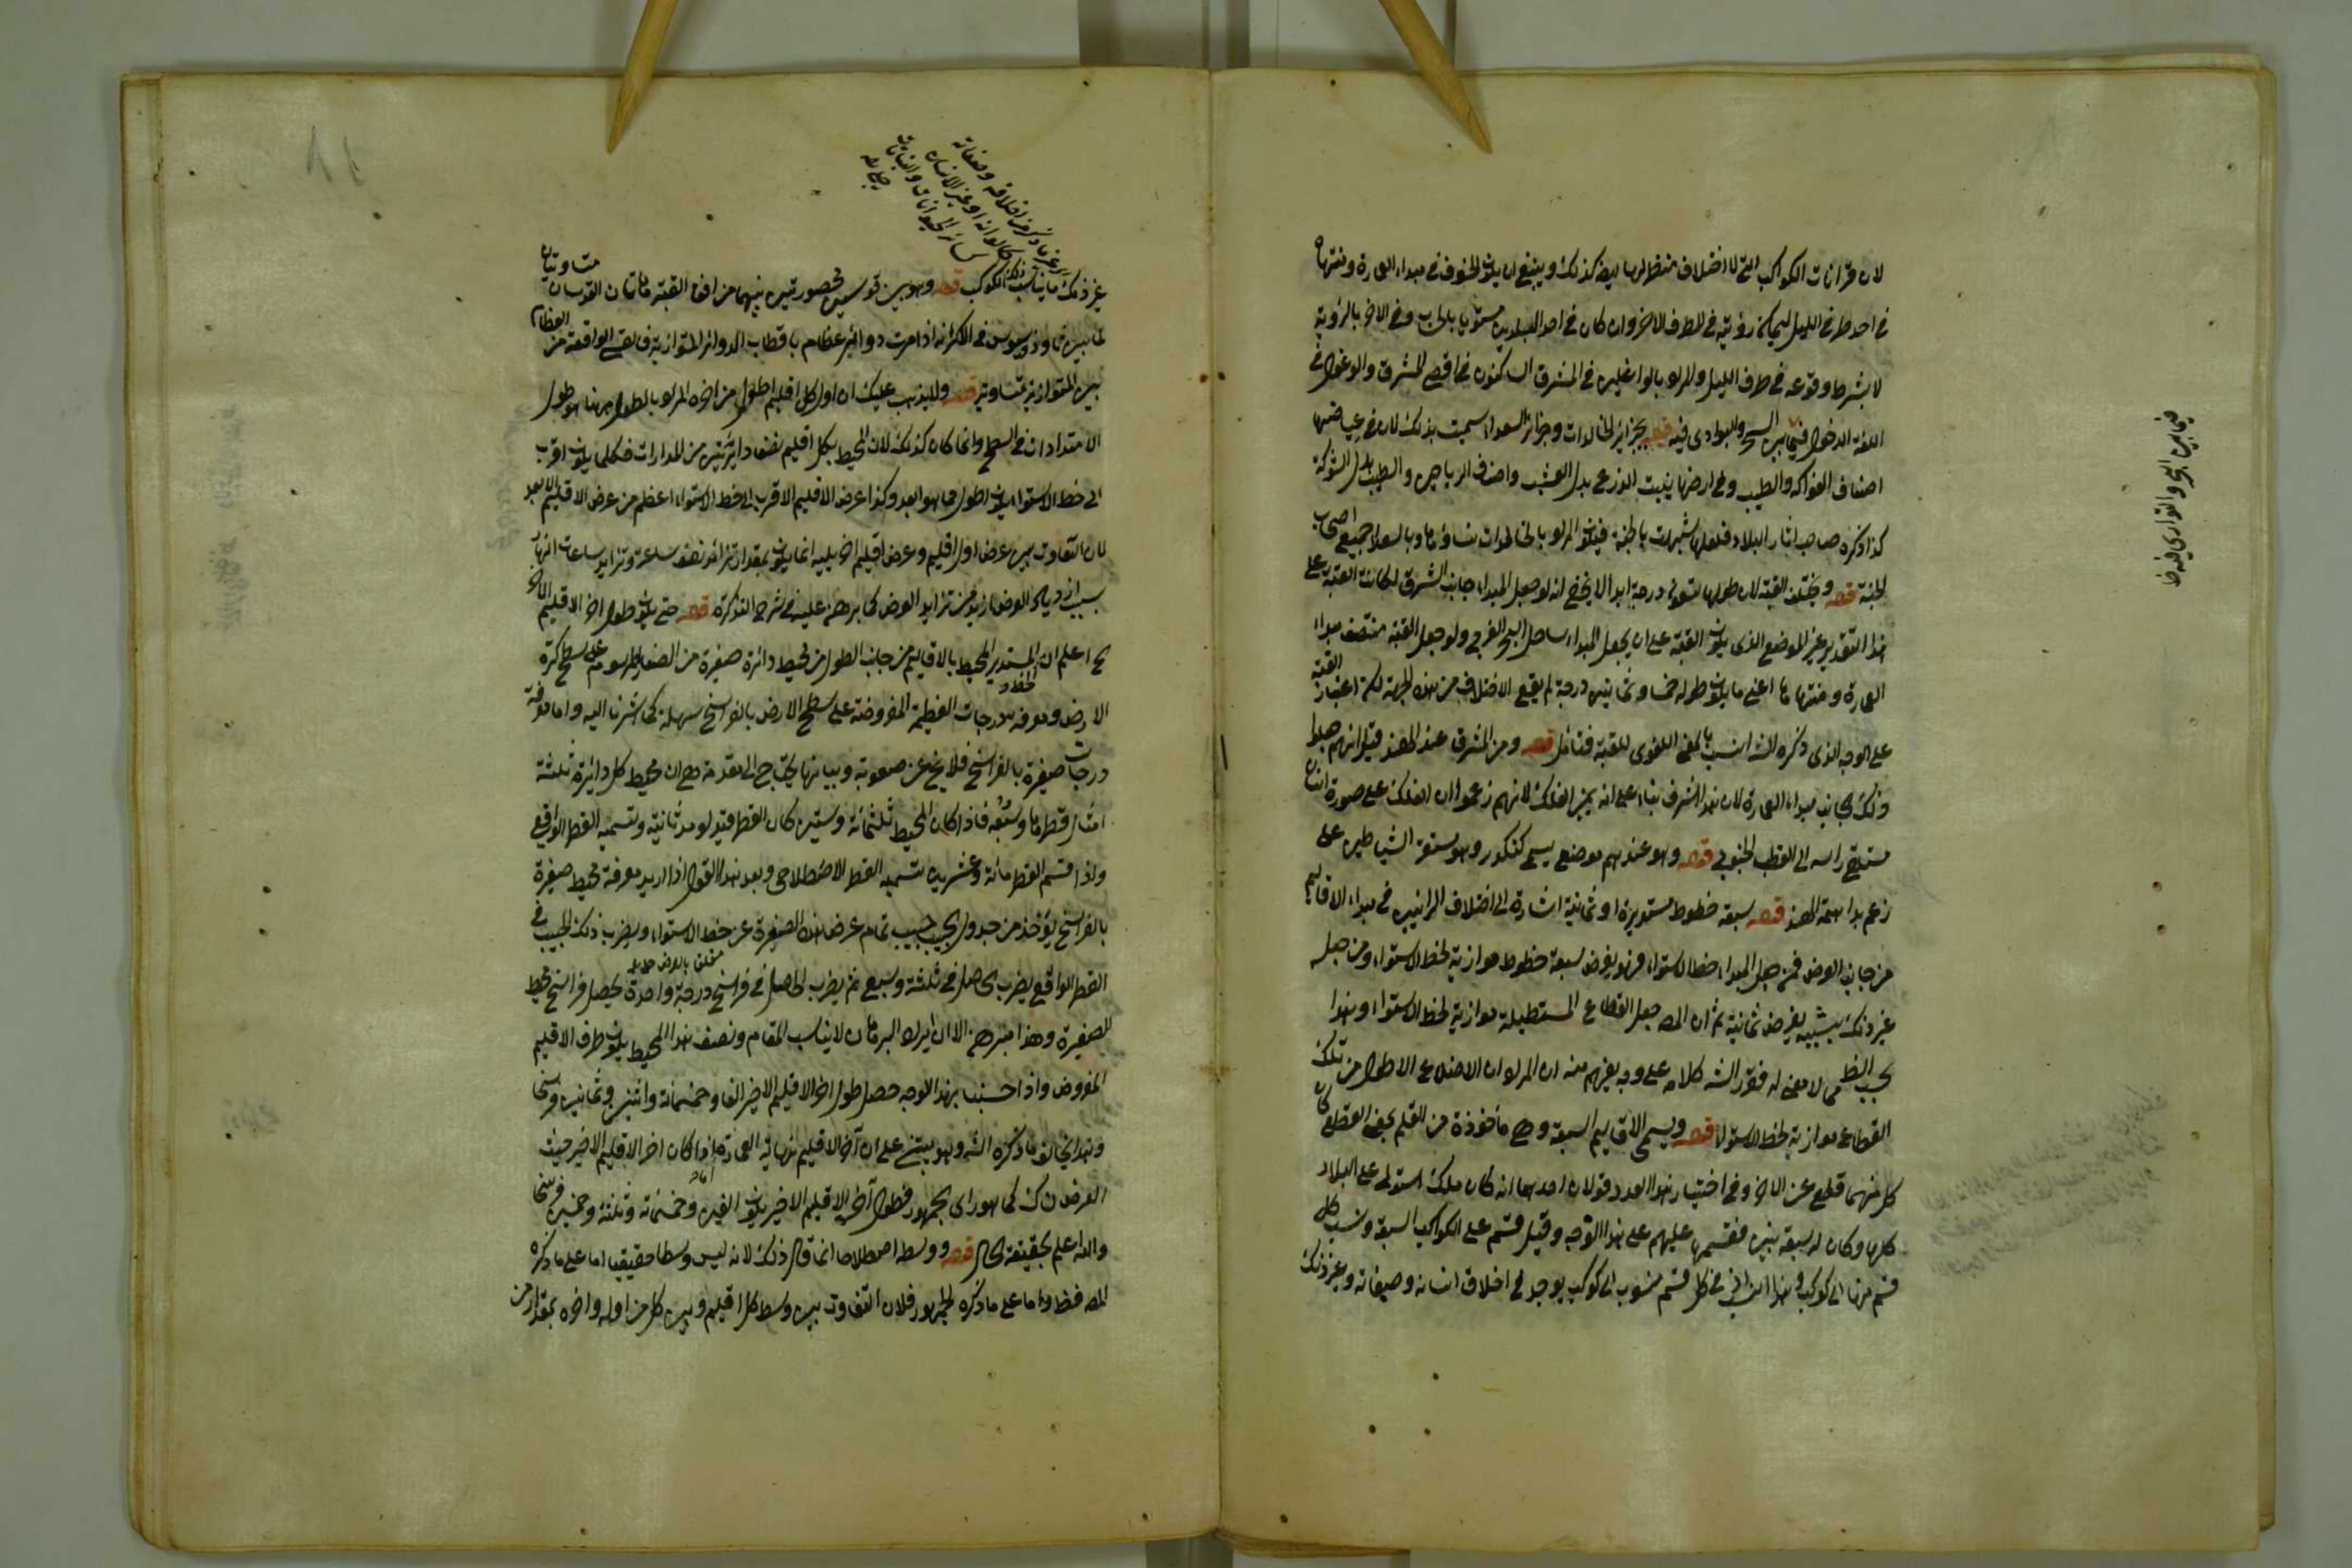 لان قرانات الكواكب التي لا اختلاف منظر لها ايضا كذلك وينبغي ان يكون الخسوف في مبداء العمارة ومنتهاها
في احد طرفي الليل ليمكن رؤيته في الطرف الاخر وان كان في احد البلدين مستويا بالحساب وفي الاخر بالرؤية
لا بشرط وقوعه في طرف الليل والمراد بالواغلين في المشرق الساكنون في اقصى المشرق والوغول في
اللغة الدخول فيما بين السحر والبوادي فيه قوله بجزاير الخالدات وجزائر السعداء سميت بذلك لان في غياضها
اصناف الفواكه والطيب وفي ارضها ينبت الزرع بدل العشب واصناف الرياحين والطيب بدل الشوكة
كذا ذكره صاحب اثار البلاد فلعلها شبهت بالجنة فيكون المراد بالخالدات نساؤها وبالسعداء جميع اصحاب
الجنة قوله ويختلف القبة لان طولها تسعون درجة ابدا لا يخفى انه لو جعل المبداء جانب الشرق لكانت القبة على
هذا التقدير غير الموضع الذي يكون القبة على ان يجعل المبداء ساحل البحر الغربي ولو جعل القبة منتصف مبداء
العمارة ومنتهاها اعني ما يكون طوله خمسا وثمانين درجة لم يقع الاختلاف من هذه الجهة لكن اعتبار القبة
على الوجه الذي ذكره الشه انسب بالمعنى اللغوي للقبة فتأمل قوله ومن المشرق عند الهند قيل انهم جعلوا
ذلك الجانب مبداء العمارة لان هذا اشرف بناء على انه يمين الفلك لانهم زعموا ان الفلك على صورة انسان
مستلقى راسه الى القطب الجنوبي قوله وهو عندهم موضع يسمى كنكدز وهو مستقر الشياطين على
زعم براهمة الهند قوله سبعة خطوط مستديرة او ثمانية اشارة الى اختلاف الرائيين في مبداء الاقاليم
من جانب العرض فمن جعل المبداء خط الاستواء فهو يفرض سبعة خطوط موازية لخط الاستواء ومن جعله
غير ذلك يفرض ثمانية ثم ان المصه جعل القطاع المستطيلة موازية لخط الاستواء وهذا
بحسب الظاهر لا معنى له فقرر الشه كلامه على وجه يفهم منه ان المراد ان الاضلاع الاطول من تلك
القطاع موازية لخط الاستواء قوله ويسمى الاقاليم السبعة وهي مأخوذة من القلم بمعنى القطع كان
كل منها قطع عن الاخر وفي اختيار هذا العدد قولان احدهما انه كان ملك استولى على البلاد
كلها وكان له سبعة بنين فقسمها عليهم على هذا الوجه وقيل قسم على الكواكب السبعة ونسب كل
قسم منها الى كوكب وهذا في كل قسم منسوب الى كوكب يوجد في اخلاق انسانه وصفاته وغير ذلك
فيما بين البحر والبراري فيه خا
غير ما ذكر من اخلاقه وصفاته
كالوانه او غير الانسان
من سائر الحيوانات والنباتات
جلي منه
غير ذلك ما يناسب ذلك الكوكب قوله وهو بين قوسين محصورتين بينهما من افق القبة هاتان القوسان متساويتان
لما بين ثاوذوسيوس في الاكر انه اذا مرت دوائر عظام باقطاب الدوائر المتوازية فالقسي الواقعة من العظام
بين المتوازية متساوية قوله ولا يذهب عليك ان اول كل اقليم اطول من اخره المراد بالطول ههنا هو طول
الامتدادات في السطح وانما كان كذلك لان المحيط بكل اقليم نصفا دائرتين من المدارات فكلما يكون اقرب
الى خط الاستواء يكون اطول مما هو ابعد وكذا عرض الاقليم الاقرب الى خط الاستواء اعظم من عرض الاقليم الابعد
لان التفاوت بين عرض اول اقليم وعرض اقليم اخر يليه انما يكون بمقدار تزائد نصف ساعة وتزايد ساعات النهار
بسبب ازدياد العرض ازيد من تزايد العرض كما برهن عليه في شرح التذكرة قوله حتى يكون طول اخر الاقليم الاخر
الخ اعلم ان المستدير المحيط بالاقاليم من جانب الطول من محيط دائرة صغيرة من الصغار المرسومة على سطح كرة
الارض ومعرفة درجات العظيمة المفروضة على سطح الارض بالفراسخ سهلة كما اشرنا اليه واما معرفة
درجات صغيرة بالفراسخ فلا يخ عن صعوبة وبيانها يحتاج الى مقدمة وهي ان محيط كل دائرة ثلثة
امثال قطرها وسبعه فاذا كان المحيط ثلثمائة وستين كان القطر قيد لو مد ثانية وتسمية القطر الواقع
واذا قسم القطر مائة وعشرين تسمية القطر الاصطلاحي وبعد هذا القول اذا اريد معرفة محيط صغيرة
بالفراسخ يؤخذ من جدول الجيب جيب تمام عرض هذه الصغيرة عن خط الاستواء ويضرب ذلك الجيب في
القطر الواقع يضرب الحاصل في ثلثة وسبع ثم يضرب الحاصل في فراسخ درجة واحدة يحصل فراسخ محيط
الصغيرة وهذا مبرهن الا ان ايراد البرهان لا يناسب المقام ونصف هذا المحيط يكون طرف الاقليم
المفروض واذا حسبنا بهذا الوجه حصل طول اخر الاقليم الاخير الفا وخمسمائة واثنين وثمانين فرسخا
وهذا يخالف ما ذكره الشه وهو يبتني على ان آخر الاقليم نهاية العمارة واما اذا كان اخر الاقليم الاخير حيث
العرض ن ك كما هو راي الجمهور فطول آخر الاقليم الاخير يكون الفين وخمسمائة وثلثة وخمسين فرسخا
والله اعلم بحقيقة الحال قوله ووسطه اصطلاحا انما قال ذلك لانه ليس وسطا حقيقيا اما على ما ذكره
المصه فظ واما على ما ذكره الجمهور فلان التفاوت بين وسط كل اقليم وبين كل من اوله واخره بمقدار من